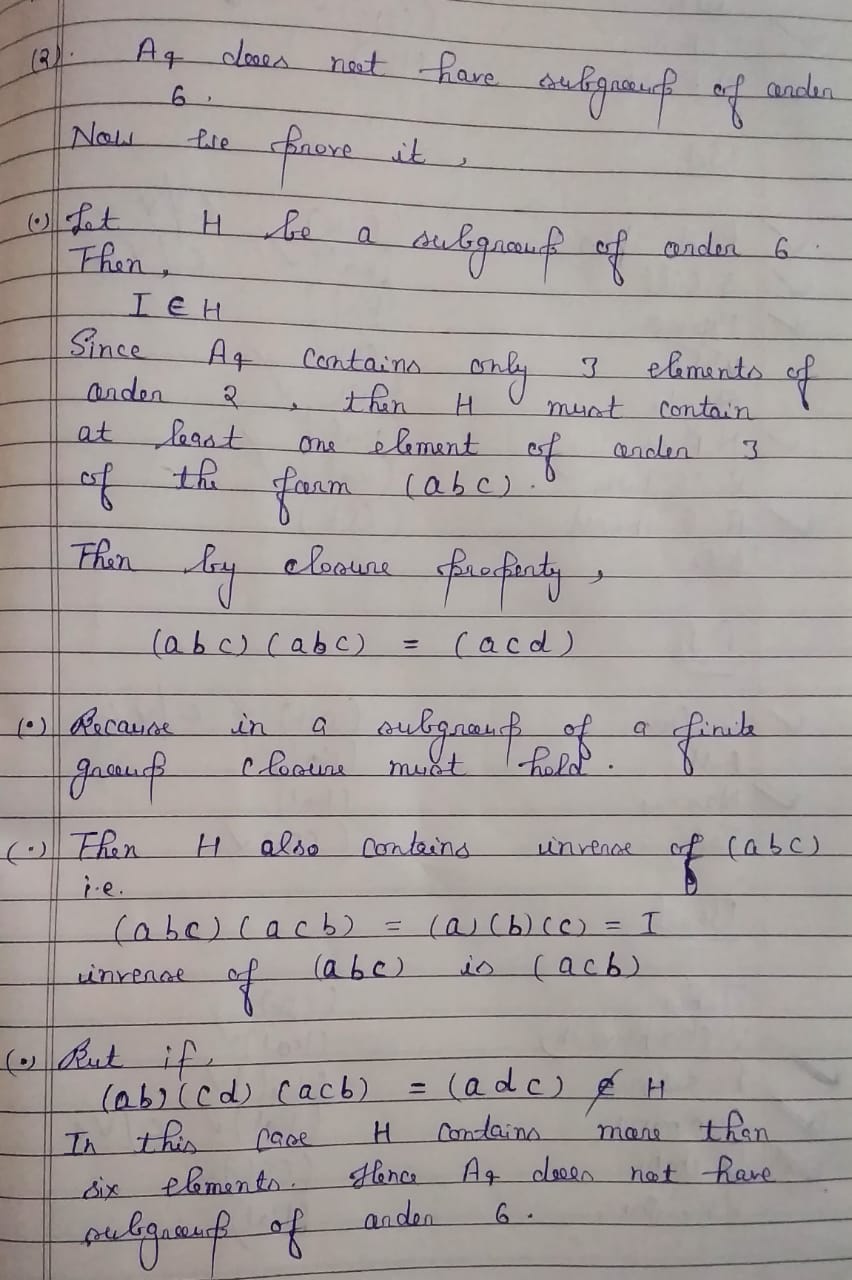 (2). A4 does not have subgroup of order
6.
Now we prove it,
(•) Let H be a subgroup of order 6.
Then,
I ∈ H
Since A4 contains only 3 elements of
order 2, then H must contain
at least one element of order 3
of the form (abc).
Then by closure property,
(abc)(abc) = (acd)
(•) Because in a subgroup of a finite
group closure must hold.
(•) Then H also contains inverse of (abc)
i.e.
(abc)(acb) = (a)(b)(c) = I
inverse of (abc) is (acb)
(•) But if,
(ab)(cd)(acb) = (adc) ∉ H
In this case H contains more than
six elements. Hence A4 does not have
subgroup of order 6.